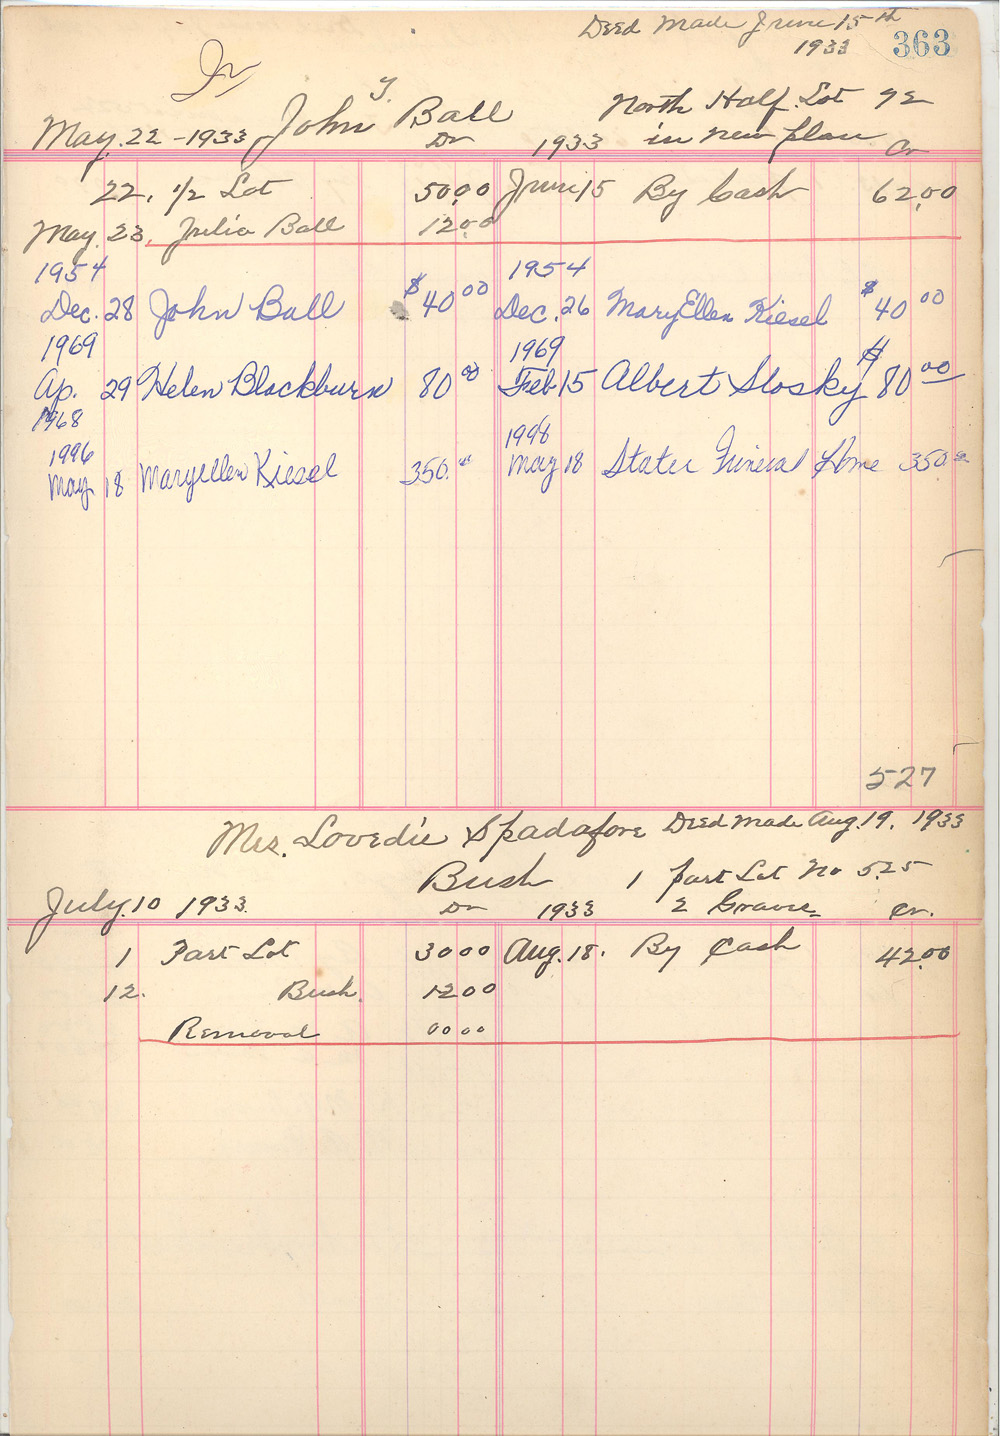 Deed Made June 15th
1933 363
Jr
John T. Ball North Half Lot 92
May. 22 - 1933 Dr 1933 in new plan Cr
22. 1/2 Lot 50.00 June 15 By Cash 62.00
May. 23. Julia Ball 12.00
1954 1954
Dec. 28 John Ball $40 00 Dec. 26 MaryEllen Kiesel $40 00
1969 1969
Ap. 29 Helen Blackburn 80 00 Feb 15 Albert Slosky $80 00
1968
1996 1998
May 18 Maryellen Kiesel 350. 00 May 18 Stater Funeral Home 350 00
527
Mrs. Lovedie Spadafore Deed Made Aug. 19. 1933
Bush 1 part Lot No 525
July. 10 1933. Dr 1933 2 Graves Cr.
1 Part Lot 30 00 Aug. 18. By Cash 42.00
12. Bush. 12 00
Removal 00 00